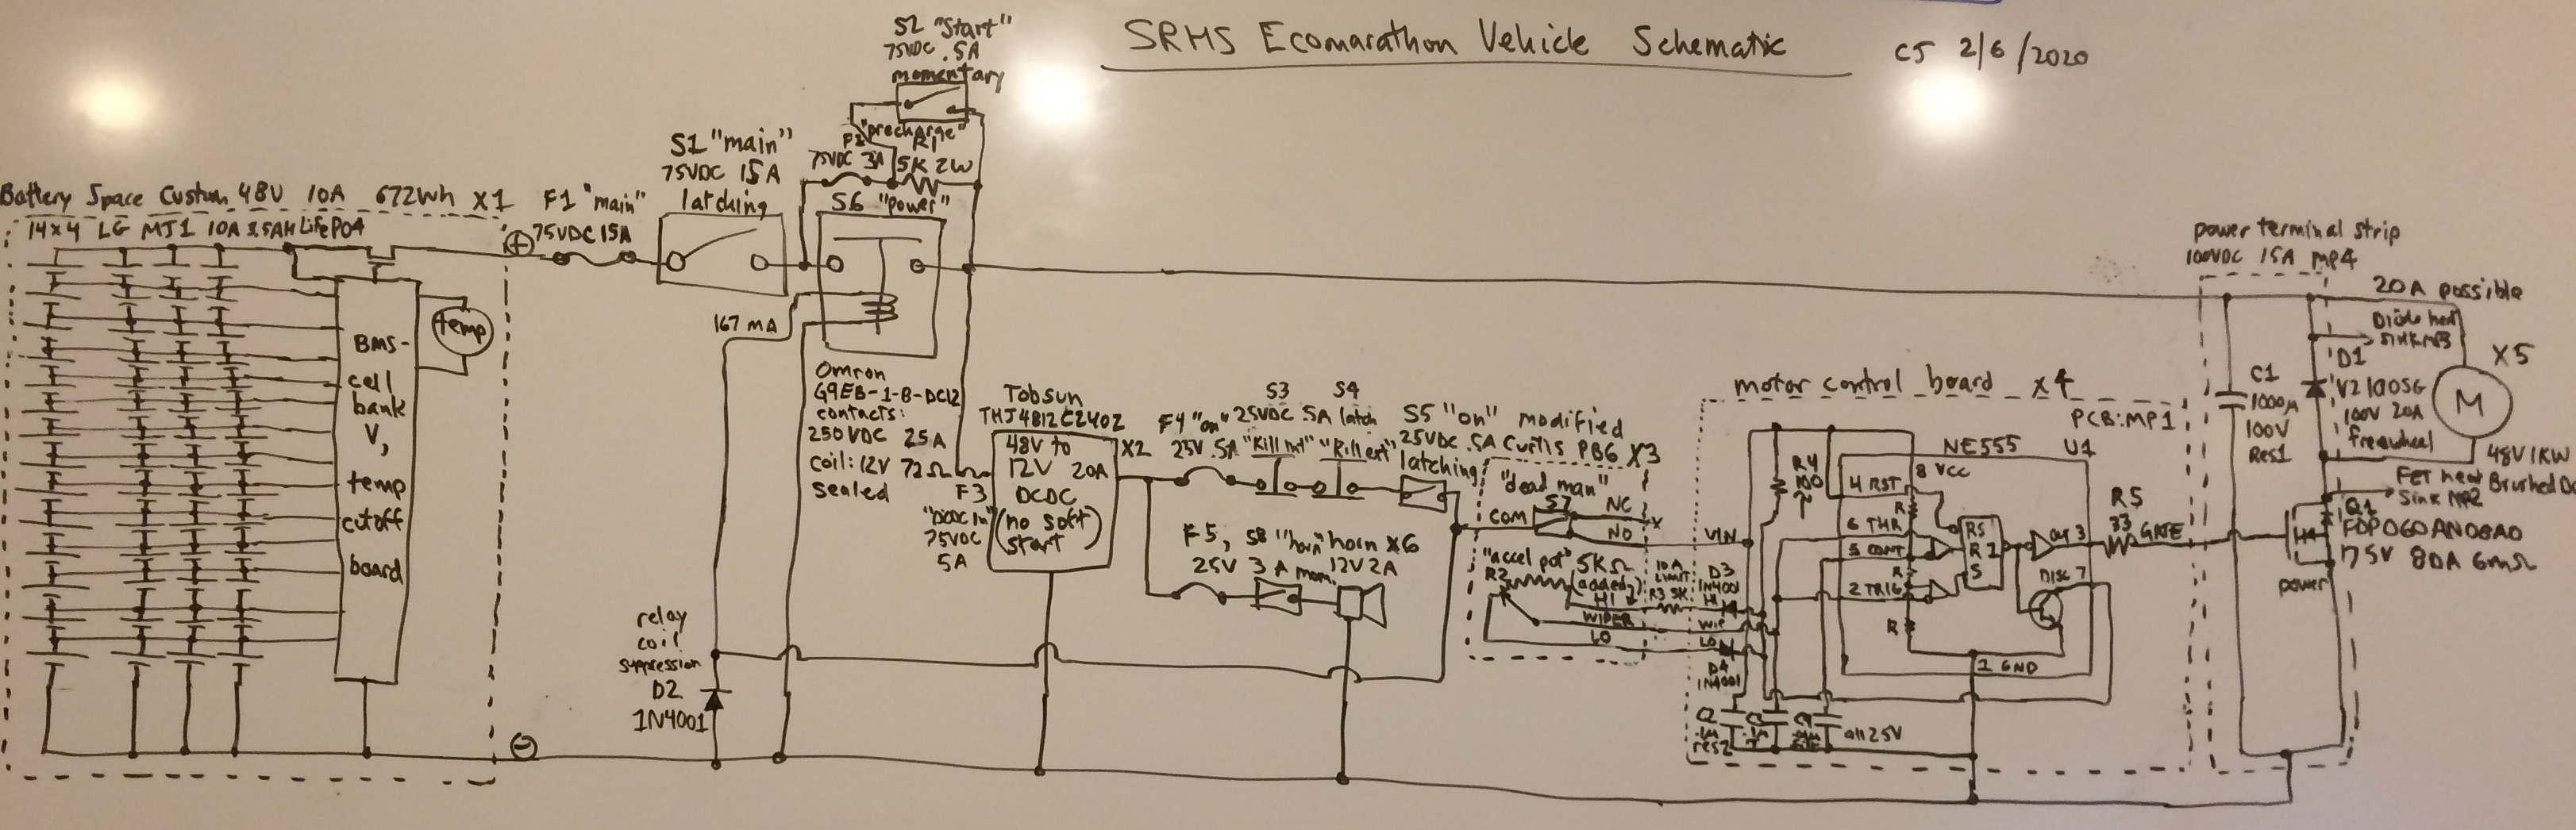 SRHS Ecomarathon Vehicle Schematic
CJ 2/6/2020
S2 "Start"
75VDC .5A
momentary
"precharge"
F2
75VDC 3A
R1
5K 2W
S1 "main"
75VDC 15A
latching
S6 "power"
Battery Space Custom 48V 10A 672Wh X1
14x4 LG MJ1 10A 3.5AH LifePO4
F1 "main"
75VDC 15A
+
BMS-
cell
bank
V,
temp
cutoff
board
temp
-
167 MA
Omron
G9EB-1-B-DC12
contacts:
250VDC 25A
coil: 12V 72Ω
sealed
relay
coil
suppression
D2
1N4001
F3
"DCDC in"
75VDC
5A
Tobsun
THJ4812C240Z
X2
48V to
12V 20A
DCDC
(no soft
start)
F4 "on"
25V .5A
S3 S4
25VDC .5A latch
"Kill int" "Kill ext"
S5 "on"
25VDC .5A
latching
F5, S8 "horn" horn X6
25V 3A mom. 12V 2A
modified
Curtis PB6 X3
"dead man"
S7
COM
NC
x
NO
"accel pot" 5KΩ
R2
(added)
HI
WIPER
LO
10A
LIMIT
R3 5K
D3
1N4001
motor control board X4
PCB:MP1
VIN
HI
WIP
LO
D4
1N4001
R4
100
NE555
U1
8 VCC
4 RST
6 THR
5 CONT
2 TRIG
R
R
R
RS
R
S
OUT 3
DISC 7
1 GND
C2
.1M
res2
C3
.1M
T
C4
all 25V
R5
33
GATE
power terminal strip
100VDC 15A MP4
20A possible
Diode heat
sink MP3
D1
V20100SG
100V 20A
freewheel
X5
M
48V 1KW
Brushed DC
C1
1000M
100V
Res1
FET heat
sink MP2
Q1
FDP060AN08A0
75V 80A 6mΩ
power